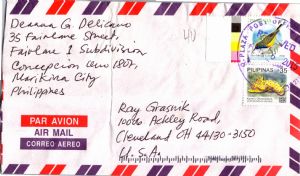 Deanna G. Delicano
35 Fairlane Street,
Fairlane 1 Subdivision
Concepcion Uno 1807,
Marikina City
Philippines
PILIPINAS 35
PAR AVION
AIR MAIL
CORREO AEREO
Ray Grasnik
10000 Ackley Road,
Cleveland OH 44130-3150
U.S.A.